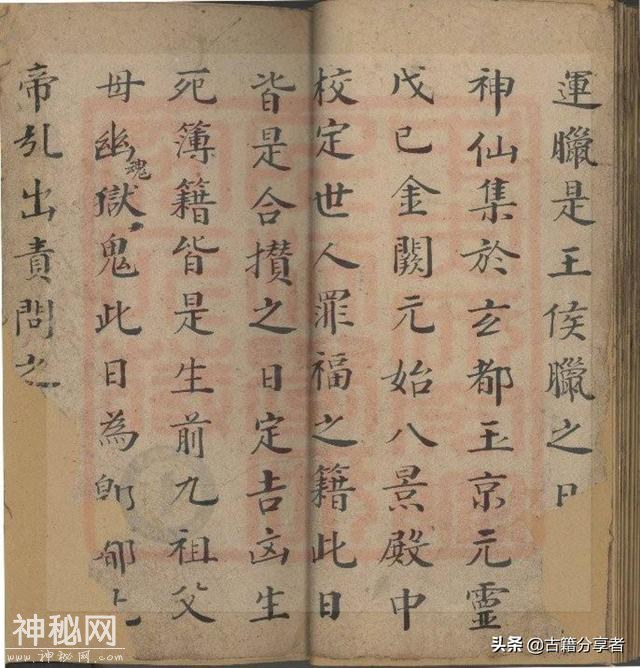 運臘是王侯臘之日
神仙集於玄都玉京元靈
戊已金闕元始八景殿中
校定世人罪福之籍此日
皆是合攢之日定吉凶生
死簿籍皆是生前九祖父
毋幽魂獄鬼此日為都
帝乩出責問之
神秘网
www.神秘网.COM
头条 @古籍分享者